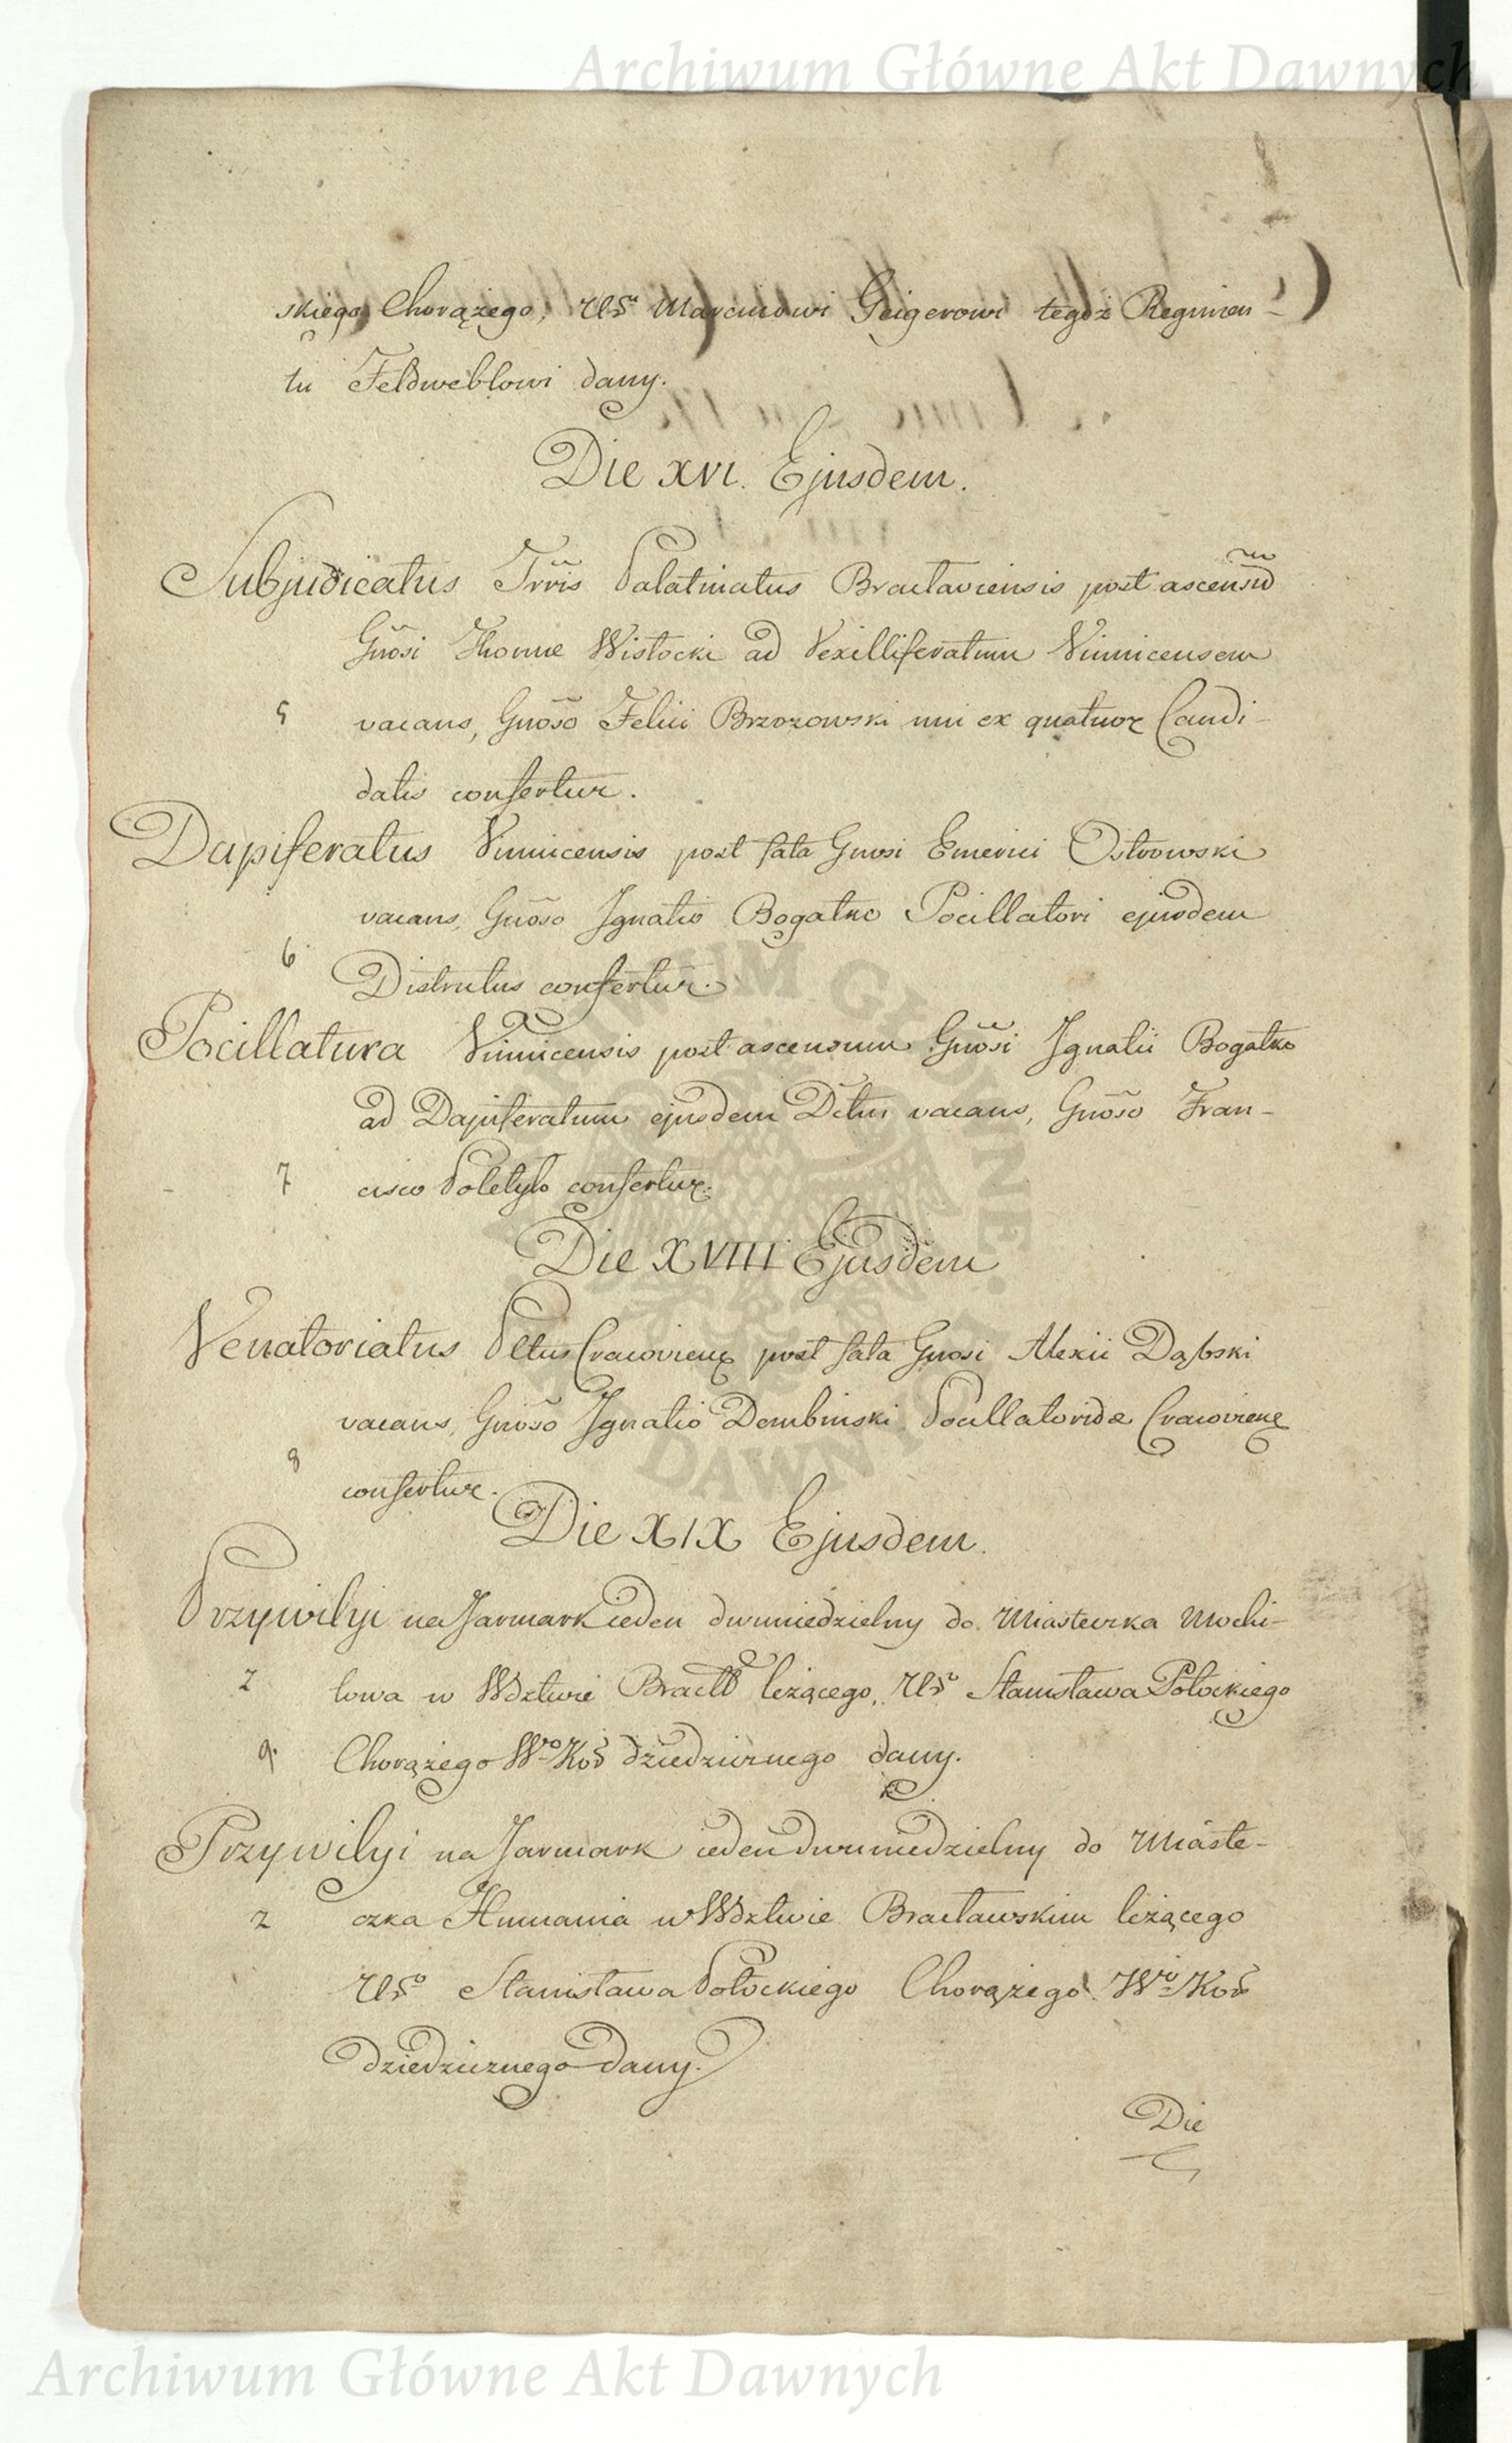 Archiwum Główne Akt Dawnych
skiego Chorążego, Ur̃o Marcinowi Geigerowi tegoż Regimen-
tu Feldweblowi dany.
Die XVI. Ejusdem.
Subjudicatus Trr̃is Palatinatus Braclaviensis post ascensũ
Gnõsi Thomae Wisłocki ad Vexilliferatum Vinnicensem
5 vacans, Gnõso Felici Brzozowski uni ex quatuor Candi-
datis confertur.
Dapiferatus Vinnicensis post fata Gnosi Emerici Ostrowski
vacans, Gnõso Ignatio Bogatko Pocillatori ejusdem
6 Districtus confertur.
Pocillatura Vinnicensis post ascensum Gnõsi Ignatii Bogatko
ad Dapiferatum ejusdem Dctus vacans, Gnõso Fran-
7 cisco Poletyło confertur.
Die XVIII Ejusdem
Venatoriatus Pltus Cracovien post fata Gnosi Alexii Dąbski
vacans, Gnõso Ignatio Dembinski Pocillatoridae Cracovien
8 confertur.
Die XIX Ejusdem.
Przywilyi na Jarmark ieden dwuniedzielny do Miasteczka Mochi-
2 lowa w Wdztwie Bracłõ leżącego, Uro Stanisława Potockiego
9. Chorążego Wgo Koõ dziedzicznego dany.
Przywilyi na Jarmark ieden dwuniedzielny do Miaste-
2 czka Humania w Wdztwie Bracławskim leżącego
Uro Stanisława Potockiego Chorążego Wgo Koõ
dziedzicznego dany.
Die
Archiwum Główne Akt Dawnych